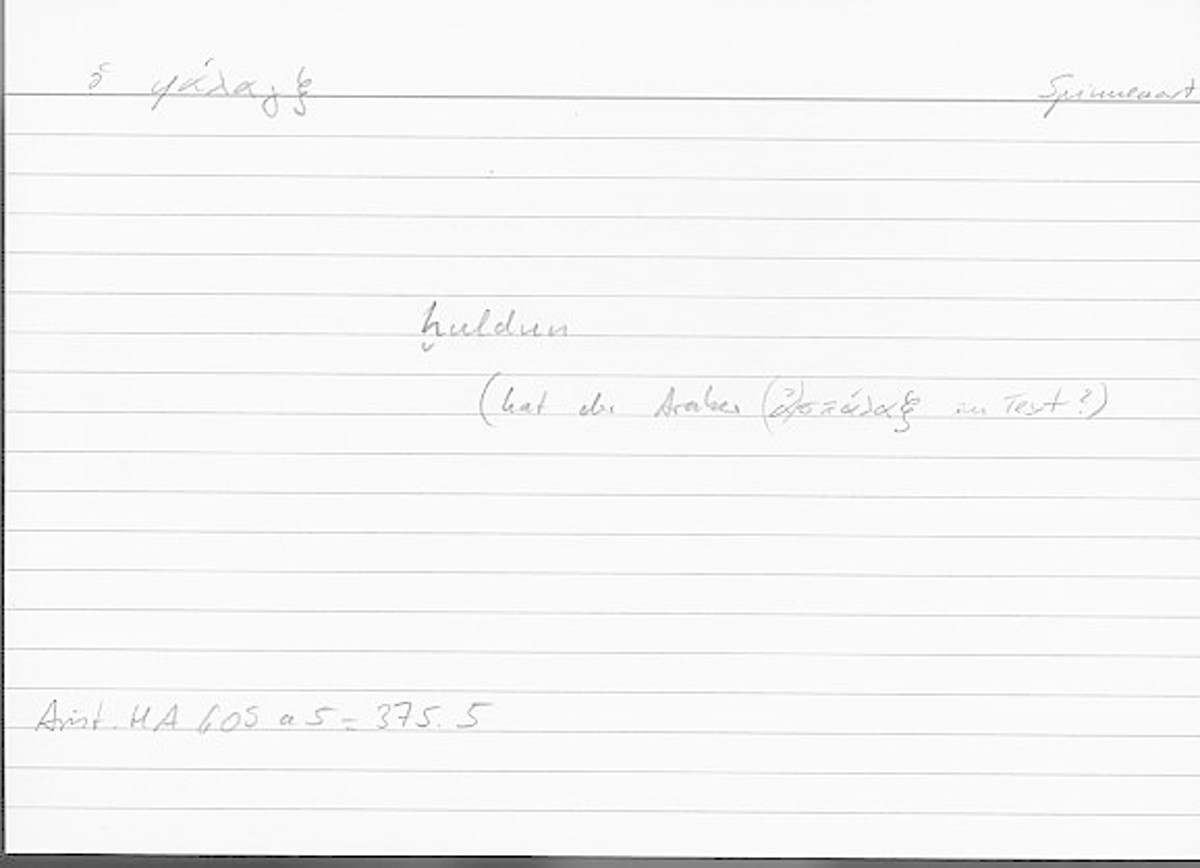 ὁ φάλαγξ Spinnenart
ḫuldun
(hat der Araber (ἀ)σπάλαξ im Text?)
Arist. HA 605 a 5 = 375.5